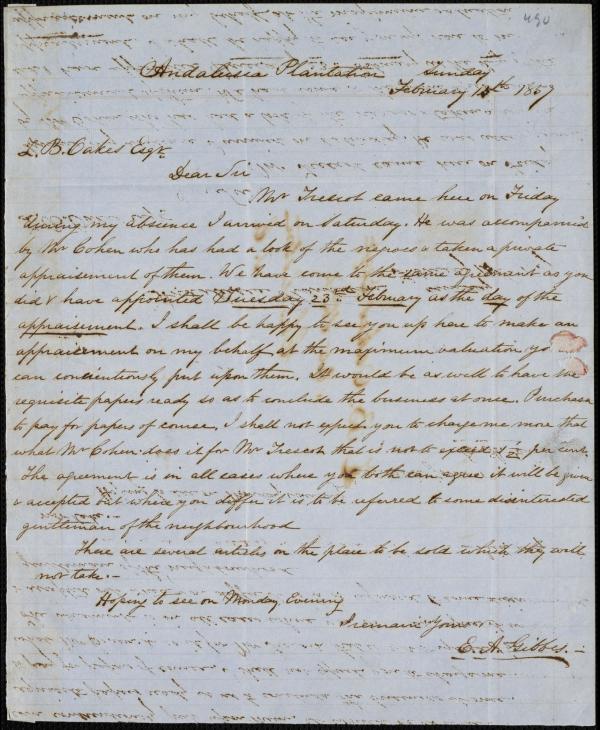 490
Andalusia Plantation Sunday
February 15th 1857
Z. B. Oakes Esqr.
Dear Sir
Mr Trescot came here on Friday
during my absence I arrived on Saturday. He was accompanied
by Mr Cohen who has had a look of the negroes & taken a private
appraisement of them. We have come to the same agreemant as you
did & have appointed Tuesday 23rd Febuary as the day of the
appraisement. I shall be happy to see you up here to make an
appraisement on my behalf at the maximum valuation yo
can concientiously put upon them. It would be as well to have the
requisite papers ready so as to conclude the business at once. Purchaser
to pay for papers of course. I shall not expect you to charge me more that
what Mr Cohen does it for Mr Trescot that is not to exceed 1/2 per cent.
The agrement is in all cases where you both can agree it will be given
& accepted but where you differ it is to be referred to some disinterested
gentleman of the neighbourhood
There are several articles on the place to be sold which they will
not take. -
Hoping to see on Monday Evening
I remain Yours
E. A. Gibbes. -